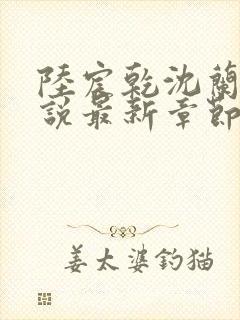 陸宸乾沈蘭
說最新章節
姜太婆釣猫